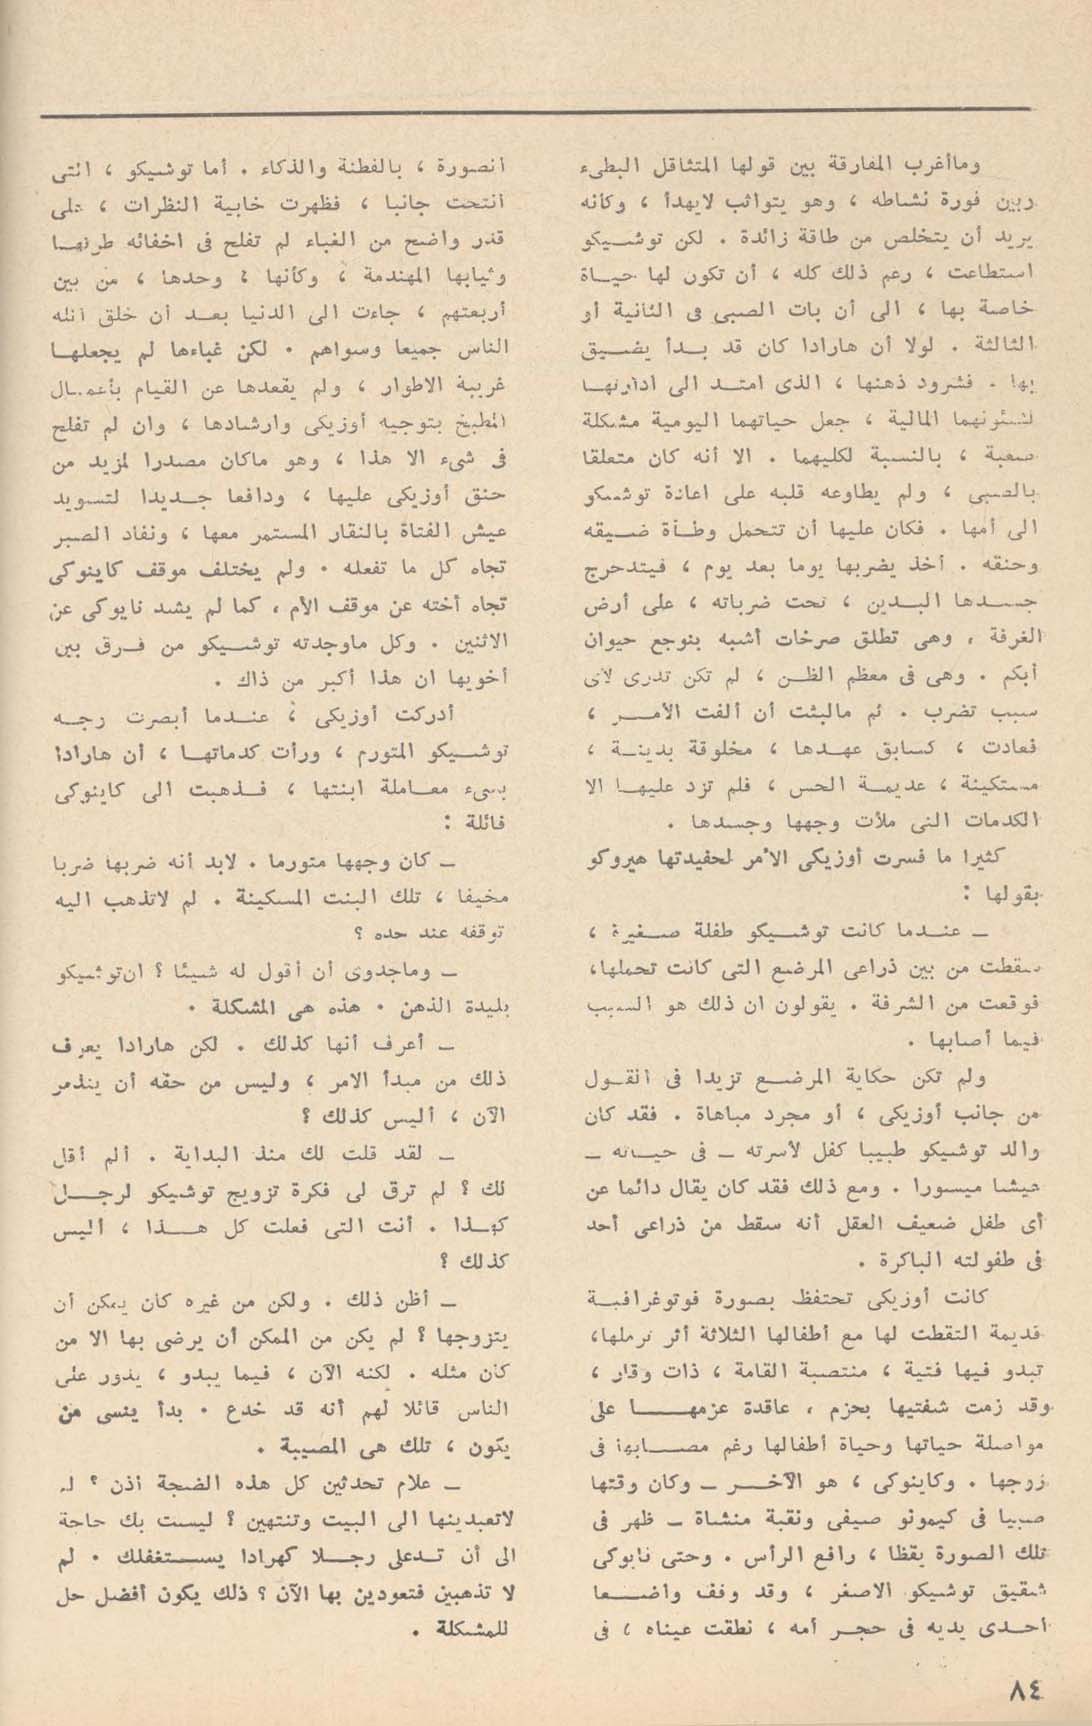 وماأغرب المفارقة بين قولها المتثاقل البطىء
وبين فورة نشاطه ، وهو يتواثب لايهدأ ، وكأنه
يريد أن يتخلص من طاقة زائدة . لكن توشيكو
استطاعت ، رغم ذلك كله ، أن تكون لها حياة
خاصة بها ، الى أن بات الصبى فى الثانية أو
الثالثة . لولا أن هارادا كان قد بدأ يضيق
بها . فشرود ذهنها ، الذى امتد الى ادارتها
لشئونهما المالية ، جعل حياتهما اليومية مشكلة
صعبة ، بالنسبة لكليهما . الا أنه كان متعلقا
بالصبى ، ولم يطاوعه قلبه على اعادة توشيكو
الى أمها . فكان عليها أن تتحمل وطأة ضيقه
وحنقه . أخذ يضربها يوما بعد يوم ، فيتدحرج
جسدها البدين ، تحت ضرباته ، على أرض
الغرفة ، وهى تطلق صرخات أشبه بتوجع حيوان
أبكم . وهى فى معظم الظن ، لم تكن تدرى لأى
سبب تضرب . ثم مالبثت أن ألفت الأمر ،
فعادت ، كسابق عهدها ، مخلوقة بدينة ،
مستكينة ، عديمة الحس ، فلم تزد عليها الا
الكدمات التى ملأت وجهها وجسدها .
كثيرا ما فسرت أوزيكى الأمر لحفيدتها هيروكو
بقولها :
ـ عندما كانت توشيكو طفلة صغيرة ،
سقطت من بين ذراعى المرضع التى كانت تحملها،
فوقعت من الشرفة . يقولون ان ذلك هو السبب
فيما أصابها .
ولم تكن حكاية المرضع تزيدا فى القول
من جانب أوزيكى ، أو مجرد مباهاة . فقد كان
والد توشيكو طبيبا كفل لأسرته ـ فى حياته ـ
عيشا ميسورا . ومع ذلك فقد كان يقال دائما عن
أى طفل ضعيف العقل أنه سقط من ذراعى أحد
فى طفولته الباكرة .
كانت أوزيكى تحتفظ بصورة فوتوغرافية
قديمة التقطت لها مع أطفالها الثلاثة أثر ترملها،
تبدو فيها فتية ، منتصبة القامة ، ذات وقار ،
وقد زمت شفتيها بحزم ، عاقدة عزمها على
مواصلة حياتها وحياة أطفالها رغم مصابها فى
زوجها . وكاينوكى ، هو الآخر ـ وكان وقتها
صبيا فى كيمونو صيفى ونقبة منشاة ـ ظهر فى
تلك الصورة يقظا ، رافع الرأس . وحتى نايوكى
شقيق توشيكو الاصغر ، وقد وقف واضعا
احدى يديه فى حجر أمه ، نطقت عيناه ، فى
الصورة ، بالفطنة والذكاء . أما توشيكو ، التى
انتحت جانبا ، فظهرت خابية النظرات ، على
قدر واضح من الغباء لم تفلح فى اخفائه طرتها
وثيابها المهندمة ، وكأنها ، وحدها ، من بين
أربعتهم ، جاءت الى الدنيا بعد أن خلق الله
الناس جميعا وسواهم . لكن غباءها لم يجعلها
غريبة الاطوار ، ولم يقعدها عن القيام بأعمال
المطبخ بتوجيه أوزيكى وارشادها ، وان لم تفلح
فى شىء الا هذا ، وهو ماكان مصدرا لمزيد من
حنق أوزيكى عليها ، ودافعا جديدا لتسويد
عيش الفتاة بالنقار المستمر معها ، ونفاد الصبر
تجاه كل ما تفعله . ولم يختلف موقف كاينوكى
تجاه أخته عن موقف الأم ، كما لم يشذ نايوكى عن
الاثنين . وكل ماوجدته توشيكو من فرق بين
أخويها ان هذا أكبر من ذاك .
أدركت أوزيكى ، عندما أبصرت وجه
توشيكو المتورم ، ورأت كدماتها ، أن هارادا
يسىء معاملة ابنتها ، فذهبت الى كاينوكى
قائلة :
ـ كان وجهها متورما . لابد أنه ضربها ضربا
مخيفا ، تلك البنت المسكينة . لم لاتذهب اليه
توقفه عند حده ؟
ـ وماجدوى أن أقول له شيئا ؟ ان توشيكو
بليدة الذهن . هذه هى المشكلة .
ـ أعرف أنها كذلك . لكن هارادا يعرف
ذلك من مبدأ الامر ، وليس من حقه أن يتذمر
الآن ، أليس كذلك ؟
ـ لقد قلت لك منذ البداية . ألم أقل
لك ؟ لم ترق لى فكرة تزويج توشيكو لرجل
كهذا . أنت التى فعلت كل هذا ، أليس
كذلك ؟
ـ أظن ذلك . ولكن من غيره كان يمكن أن
يتزوجها ؟ لم يكن من الممكن أن يرضى بها الا من
كان مثله . لكنه الآن ، فيما يبدو ، يدور على
الناس قائلا لهم أنه قد خدع . بدأ ينسى من
يكون ، تلك هى المصيبة .
ـ علام تحدثين كل هذه الضجة اذن ؟ لم
لاتعيدينها الى البيت وتنتهين ؟ ليست بك حاجة
الى أن تدعى رجلا كهرادا يستغفلك . لم
لا تذهبين فتعودين بها الآن ؟ ذلك يكون أفضل حل
للمشكلة .
٨٤